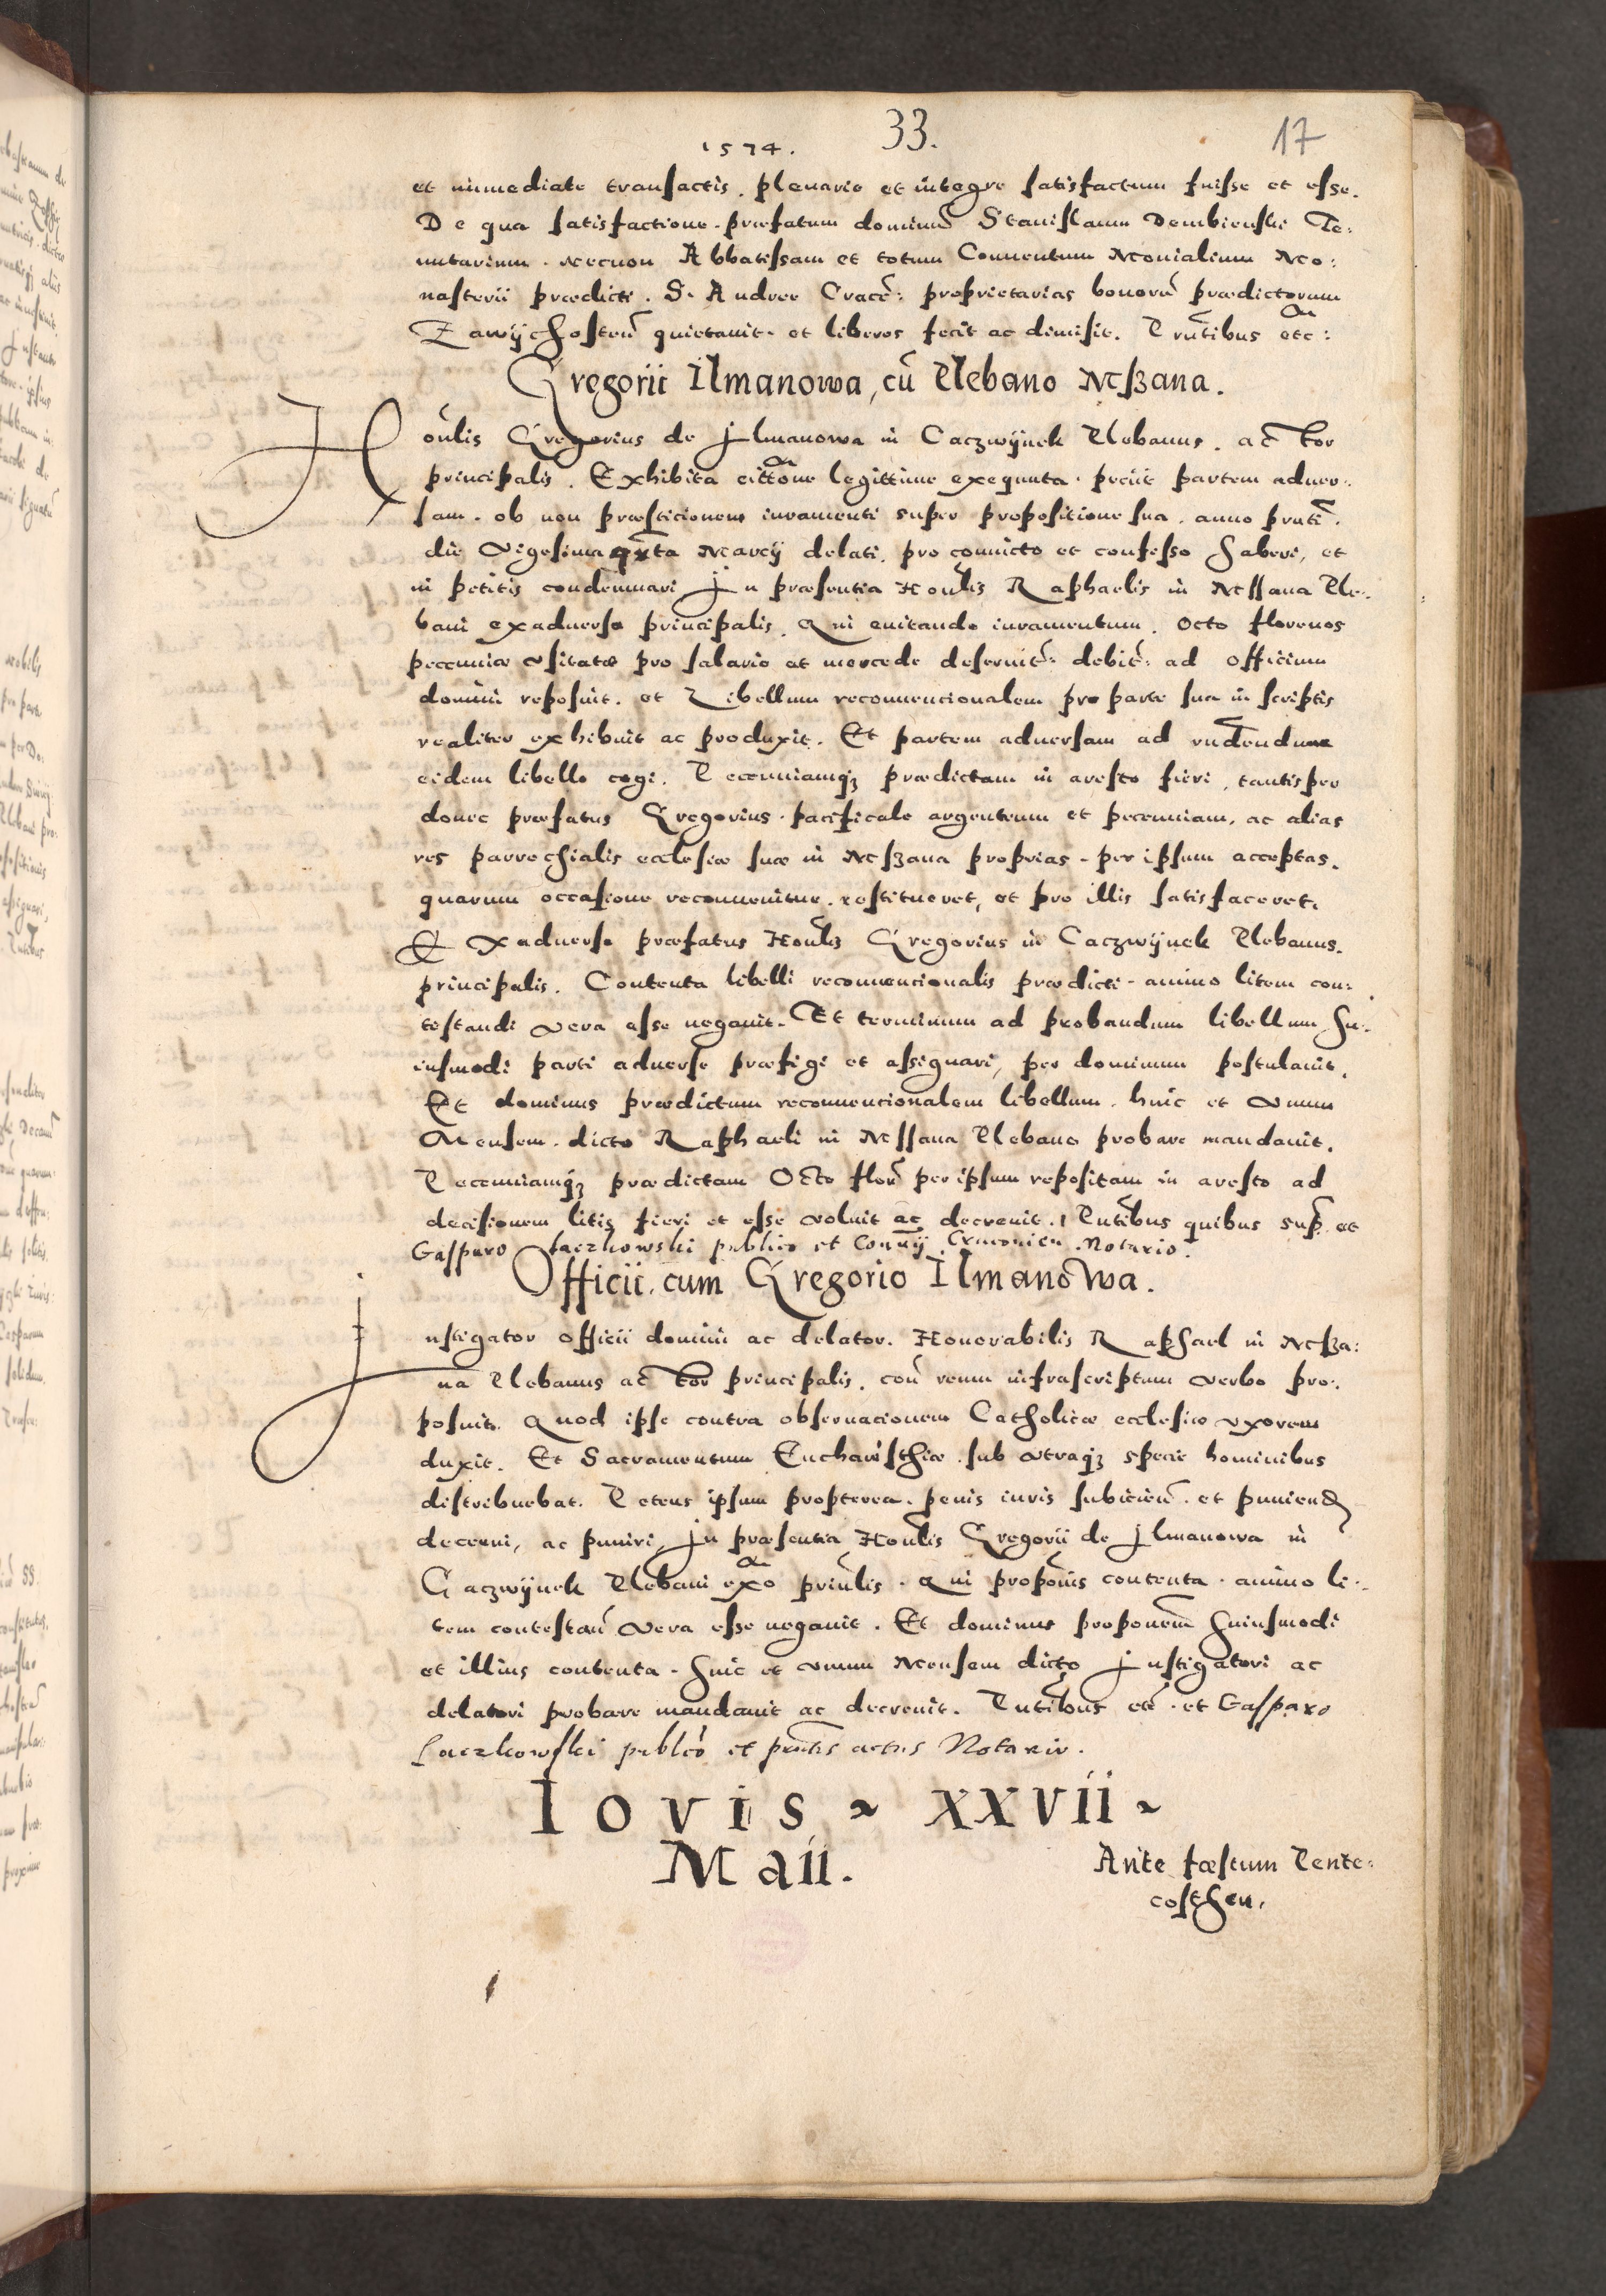 33.
17
1574.
et immediate transactis. plenarie et integre satisfactum fuisse et esse.
De qua satisfactione. præfatum dominũ Stanislaum Dembienski Te:
nutarium. necnon Abbatissam et totum Conuentum Monialium Mo:
nasterii prædicti. S. Andree Cracẽ: proprietarias bonorũ prædictorum
Zawijchosteñ quietauit. et liberos fecit ac dimisit. Pñtibus etc:
Gregorii Ilmanowa, cũ Plebano Mszana.
Hoñlis Gregorius de Jlmanowa in Caczwijnek Plebanus. actor
principalis. Exhibita citt̃one legittime exequuta. peciit partem aduer:
sam. ob non præsticionem iuramenti super propositione sua. anno pñti.
die vigesima qrta Marcij delati. pro conuicto et confesso haberi, et
in petitis condemnari, Jn præsentia Hoñlis Raphaelis in Mssana Ple:
bani exaduerso principalis. Qui euitando iuramentum. Octo florenos
pecuniæ vsitatæ pro salario et mercede deseruit̃: debit̃: ad officium
domini reposuit. et Libellum reconuencionalem pro parte sua in scriptis
realiter exhibuit ac produxit. Et partem aduersam ad rñdendum
eidem libello cogi. Pecuniamqʒ prædictam in aresto fieri, tantisper
donec præfatus Gregorius. pacificale argenteum et pecuniam, ac alias
res parrochialis ecclesiæ suæ in Mszana proprias. per ipsum acceptas.
quarum occasione reconuenitur. restitueret, et pro illis satisfaceret.
Exaduerso præfatus Hoñlis Gregorius in Caczwijnek Plebanus.
principalis. Contenta libelli reconuencionalis prædicti. animo litem con:
testandi vera esse negauit. Et terminum ad probandum libellum hu:
iusmodi parti aduerse præfigi et assignari, per dominum postulauit.
Et dominus prædictum reconuencionalem libellum. hinc et vnum
Mensem. dicto Raphaeli in Mssana Plebano probare mandauit.
Pecuniamqʒ prædictam Octo floñ per ipsum repositam in aresto ad
decisionem litis fieri et esse voluit ac decreuit. Pñtibus quibus sup̃. et
Gasparo Laczkowski publico et Connij Cracouien. Notario.
Officii. cum Gregorio Ilmanowa.
Jnstigator officii domini ac delator. Honorabilis Raphael in Msza:
na Plebanus actor principalis. coñ reum infrascriptum verbo pro:
posuit. Quod ipse contra obseruacionem Catholicæ ecclesiæ vxorem
duxit. Et Sacramentum Eucharisthiæ sub vtraqʒ specie hominibus
distribuebat. Petens ipsum propterea. penis iuris subiicieñ. et puniend
decerni, ac puniri, Jn præsentia Hoñlis Gregorii de Jlmanowa in
Caczwijnek Plebani exõ priñlis. Qui propõnis contenta. animo li:
tem contestañ vera esse negauit. Et dominus proponem̃ huiusmodi
et illius contenta. hinc et vnum Mensem dicto Jnstigatori ac
delatori probare mandauit ac decreuit. Pñtibus etc̃. et Gasparo
Laczkowski publco et pñtis actus Notario.
Iovis ~ xxvii ~
Maii.
Ante fæstum Pente:
costhen.